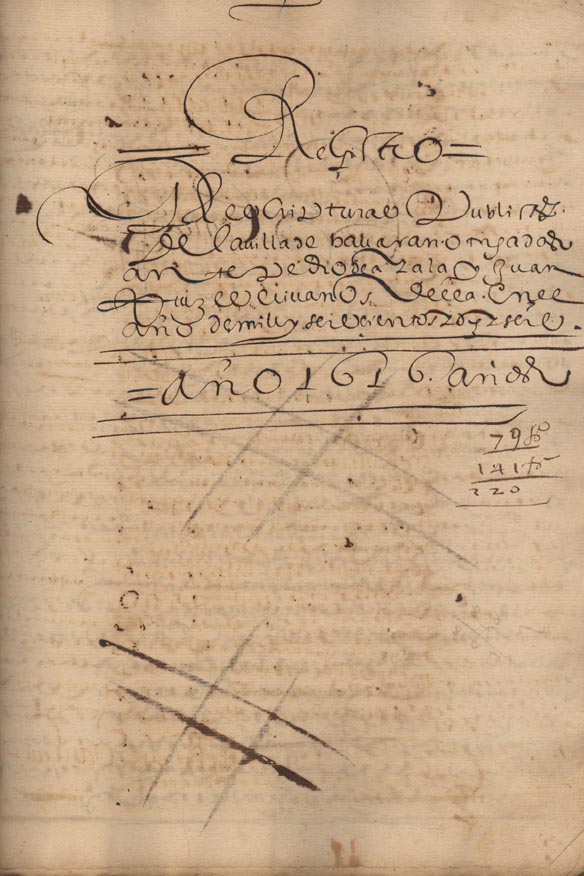 = Registro =
De escripturas Publicas
de la villa de navarra otorgadas
ante Pedro de a Juan
Ruiz escrivanos della. En el
año de mill y seiscientos y diez y seis.
= año 1616. años
79 fo
141 fo
220